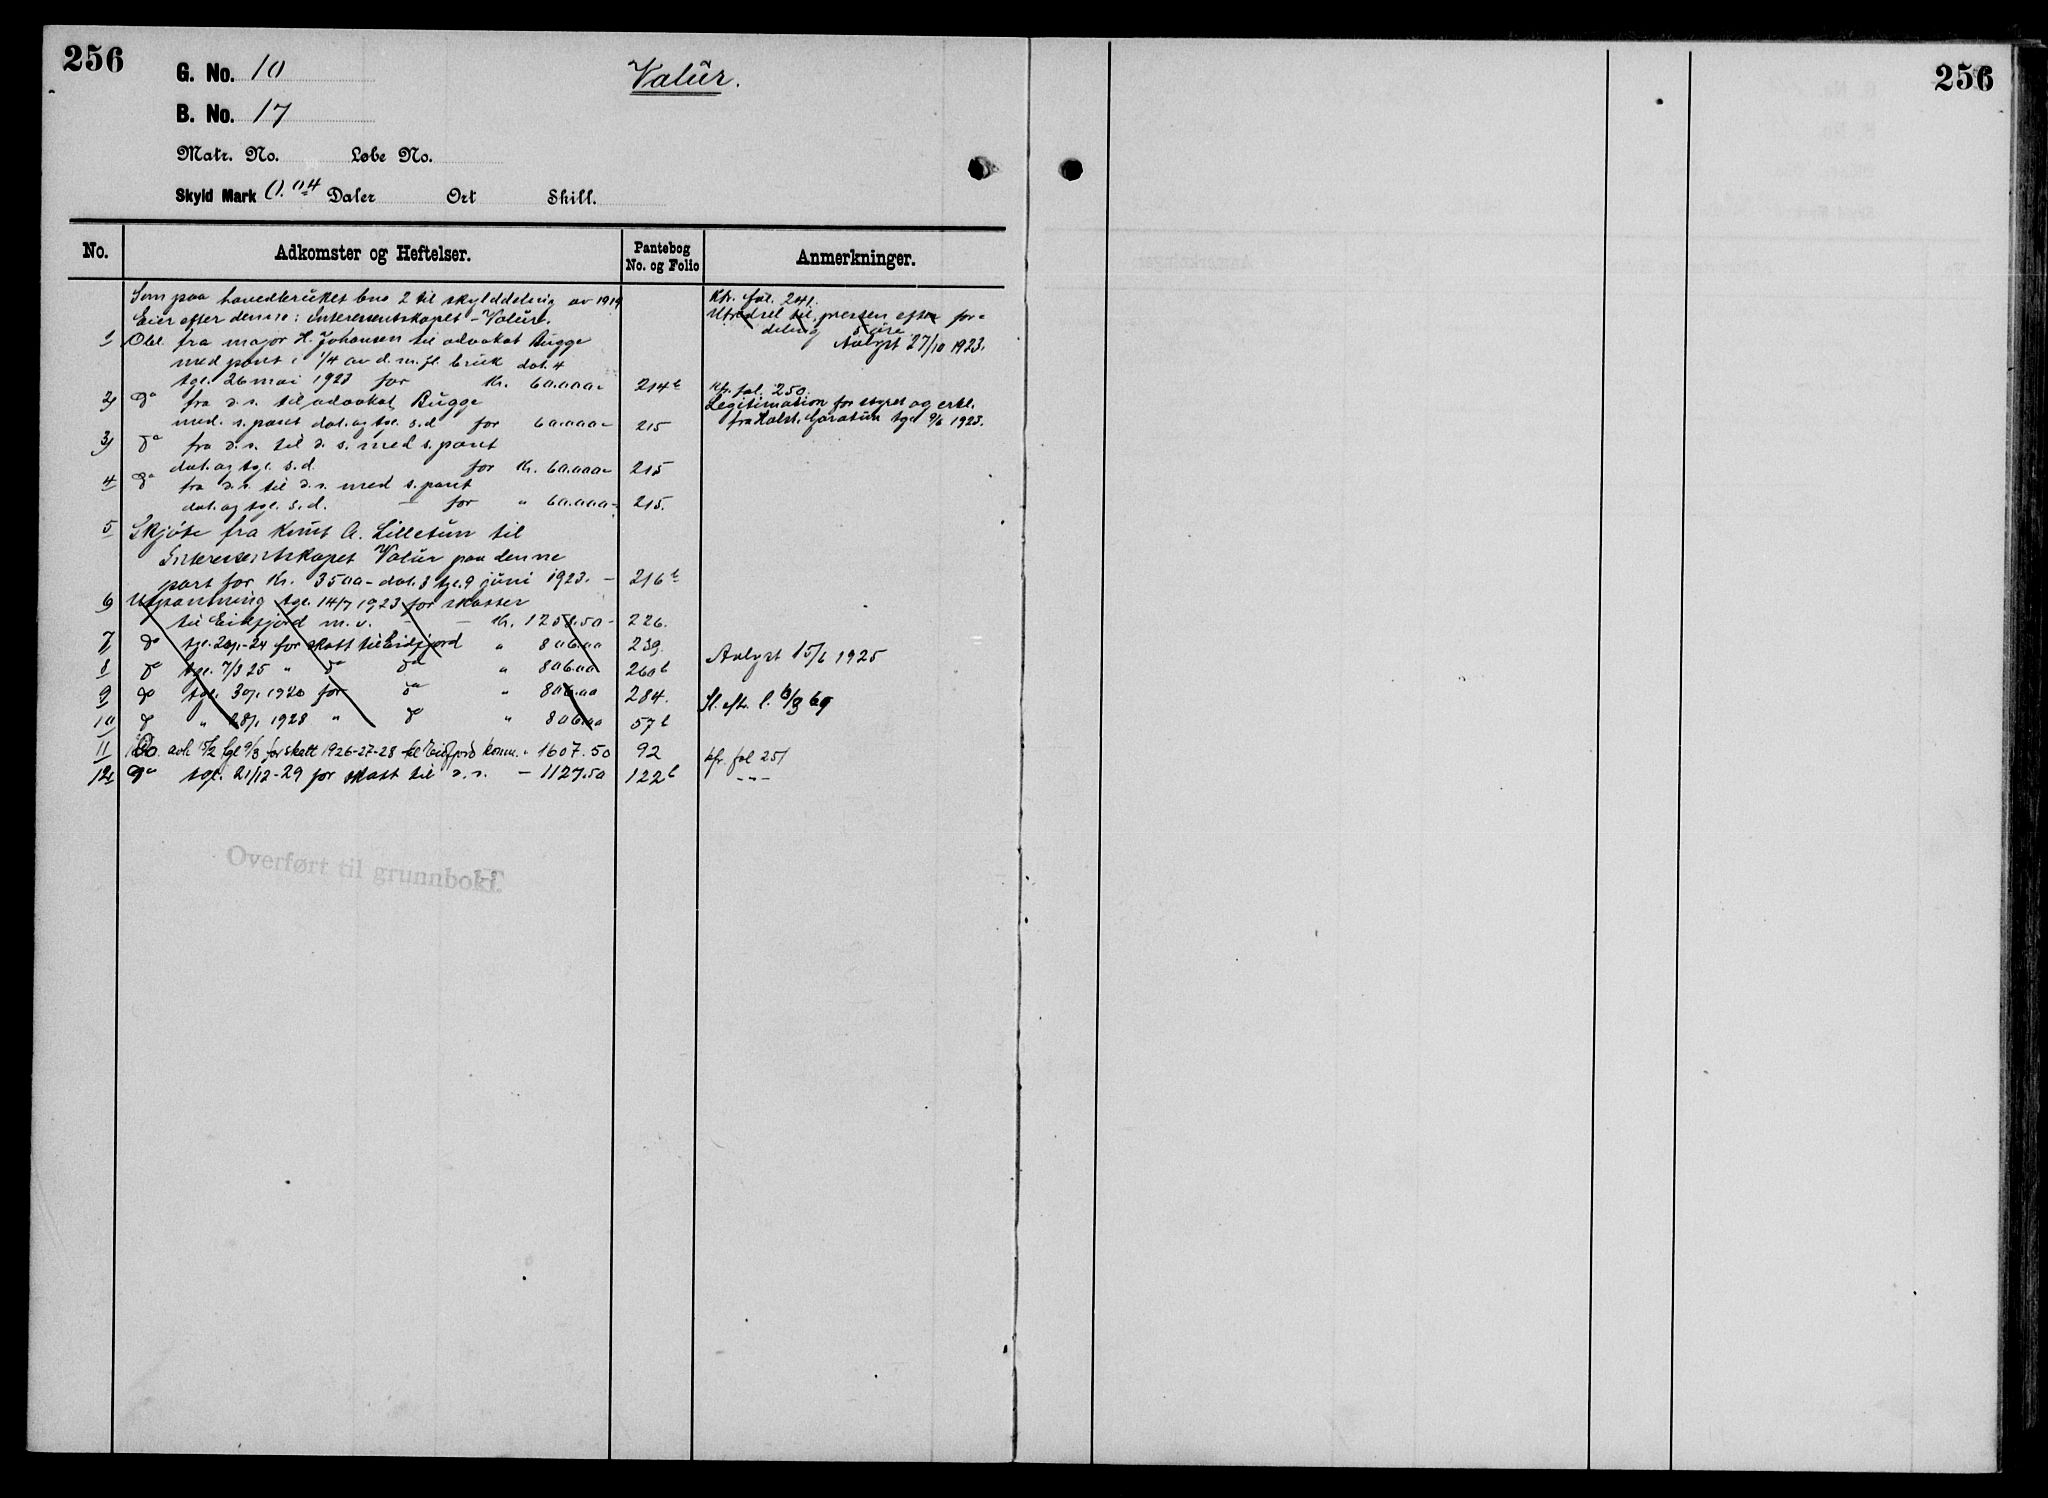 256
G. No. 10
Valür.
B. No. 17
Matr. No. Løbe No.
Skyld Mark 0.04 Daler Ort Skill.
No. Adkomster og Heftelser. Pantebog No. og Folio Anmerkninger.
Som paa hovedbruket bno 2 til skylddeling av 1919
Eier efter denne: interessentskapet - Valür.
1 Obl. fra major H. Johansen til advokat Bugge
med pant i 1/4 av d. m. fl. bruk dat. 4
tgl. 26 mai 1923 for Kr. 60.000- 214b
2) do fra d. s. til advokat Bugge
med s. pant dat. og tgl. s. d for 60.000- 215
3) do fra d. s. til d. s. med s. pant
dat. og tgl. s. d. for Kr. 60.000- 215
4 do fra d. s. til d. s. med s. pant
dat. og tgl. s. d. - for " 60.000- 215.
5 Skjøte fra Knut A. Lilletun til
Interessentskapet Valür paa denne
part for Kr. 3500- dat. 3 tgl. 9 juni 1923. - 216b
6) Utpantning tgl. 14/7 1923 for skatter
til Eidfjord m. v. - - Kr. 1258.50- 226.
7 do tgl. 29/1-24 for skatt til Eidfjord " 806.00 239.
8 do tgl. 7/3 25 " do do " 806.00 260b
9 do tgl. 30/1 1920 for do " 806.00 284.
10 do " 28/1 1928 " do " 806.00 57b
11 Do. avh 15/2 tgl 9/3 for skatt 1926-27-28 til Eidfjord komm. " 1607.50 92
12 do tgl. 21/12-29 for skatt til d. s. - 1127.50 122b
Kfr. fol. 241.
til pressen efter for-
deling
Avlyst 27/10 1923.
Kfr. fol. 250.
Legitimation for styret og erkl.
fra tgl 9/6 1923.
Avlyst 15/6 1925
Sl. eftr. l. 13/3 69
kfr. fol 251
- " -
Overført til grunnboki.
256